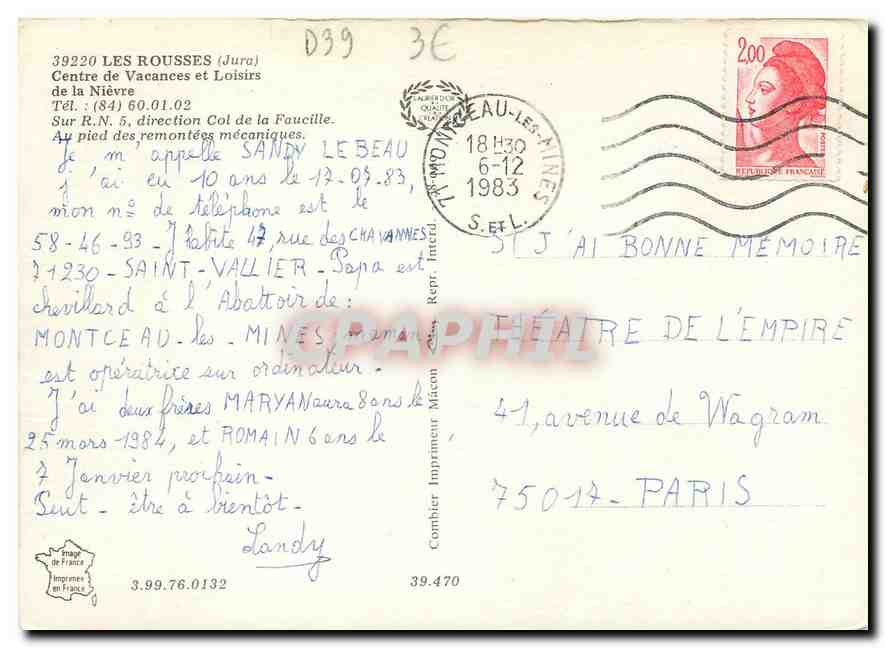 D39 3€
39220 LES ROUSSES (Jura)
Centre de Vacances et Loisirs
de la Nièvre
Tél. : (84) 60.01.02
Sur R.N. 5, direction Col de la Faucille.
Au pied des remontées mécaniques.
Je m'appelle SANDY LEBEAU
j'ai eu 10 ans le 17-07-83,
mon nº de téléphone est le
58-46-93- J'habite 47, rue des CHAVANNES
71230-SAINT-VALLIER-Papa est
chevillard à l'Abattoir de:
MONTCEAU-les-MINES, maman
est opératrice sur ordinateur-
J'ai deux frères MARYAN aura 8 ans le
25 mars 1984, et ROMAIN 6 ans le
7 Janvier prochain-
Peut-être à bientôt-
Sandy
Image
de France
Imprimée
en France
3.99.76.0132
39.470
Combier Imprimeur Mâcon Repr. Interd.
LAURIER D'OR
QUALITÉ
71 MONTCEAU-LES-MINES
18H30
6-12
1983
S. ET L.
2,00
POSTES
REPUBLIQUE FRANCAISE
SI J'AI BONNE MÉMOIRE
THÉATRE DE L'EMPIRE
41, avenue de Wagram
75017-PARIS
CPAPHIL